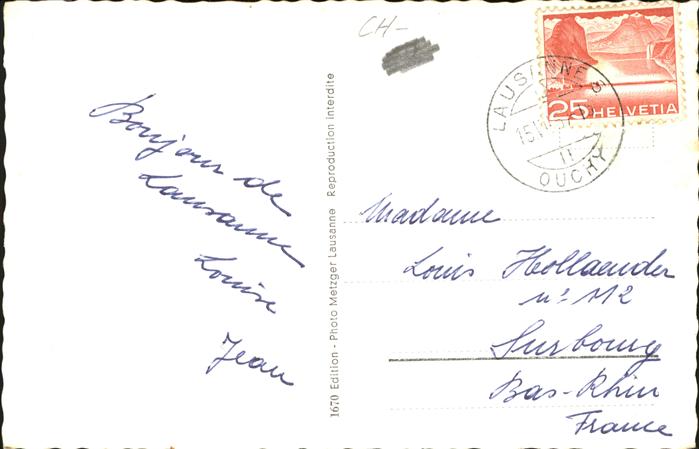 CH-
25 HELVETIA
LAUSANNE 6
OUCHY
Bonjour de
Lausanne
Louise
Jean
1670 Edition - Photo Metzger Lausanne Reproduction interdite
Madame
Louis Hollaender
n° 112
Surbourg
Bas-Rhin
France